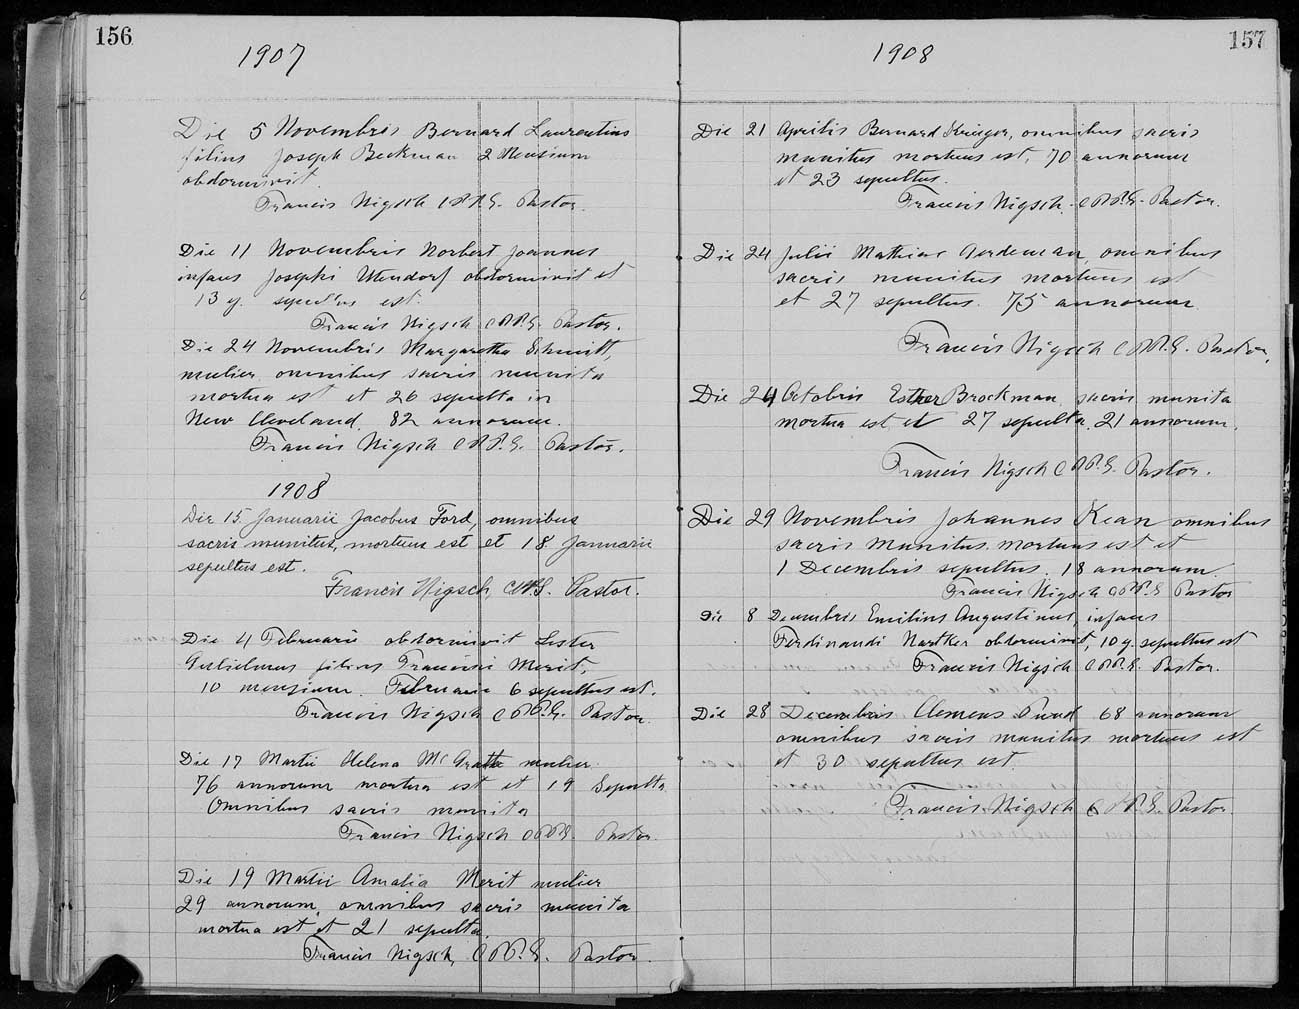 156
1907
Die 5 Novembris Bernard Laurentius
filius Joseph Beckman 2 Mensium
obdormivit.
Francis Nigsch C.PP.S. Pastor.
Die 11 Novembris Norbert Joannes
infans Josephi Utendorf obdormivit et
13 ej. sepultus est.
Francis Nigsch C.PP.S. Pastor.
Die 24 Novembris Margaretha Schmitt,
mulier omnibus sacris munita
mortua est et 26 sepulta in
New Cleveland, 82 annorum.
Francis Nigsch C.PP.S. Pastor.
1908
Die 15. Januarii Jacobus Ford, omnibus
sacris munitus, mortuus est et 18. Januarii
sepultus est.
Francis Nigsch, C.PP.S. Pastor.
Die 4 Februarii obdormivit Lester
Gulielmus filius Francisci Merit,
10 mensium. Februarii 6 sepultus est.
Francis Nigsch C.PP.S. Pastor.
Die 17 Martii Helena McGrath mulier
76 annorum mortua est et 19 Sepulta
Omnibus sacris munita
Francis Nigsch C.PP.S. Pastor.
Die 19 Martii Amalia Merit mulier
29 annorum, omnibus sacris munita
mortua est et 21 sepulta.
Francis Nigsch, C.PP.S. Pastor.
157
1908
Die 21 Aprilis Bernard Krieger, omnibus sacris
munitus mortuus est, 70 annorum
et 23 sepultus.
Francis Nigsch. C.PP.S. Pastor.
Die 24 Julii Mathias omnibus
sacris munitus mortuus est
et 27 sepultus. 75 annorum
Francis Nigsch C.PP.S. Pastor.
Die 24 Octobris Esther Brockman, sacris munita
mortua est et 27 sepulta. 21 annorum.
Francis Nigsch C.PP.S. Pastor.
Die 29 Novembris Johannes Kean omnibus
sacris munitus mortuus est et
1 Decembris sepultus. 18 annorum.
Francis Nigsch C.PP.S. Pastor
Die 8 Decembris Emilius Augustinus, infans
Ferdinandi obdormivit, 10 ej. sepultus est
Francis Nigsch C.PP.S. Pastor.
Die 28 Decembris Clemens 68 annorum
omnibus sacris munitus mortuus est
et 30 sepultus est.
Francis Nigsch C.PP.S. Pastor.